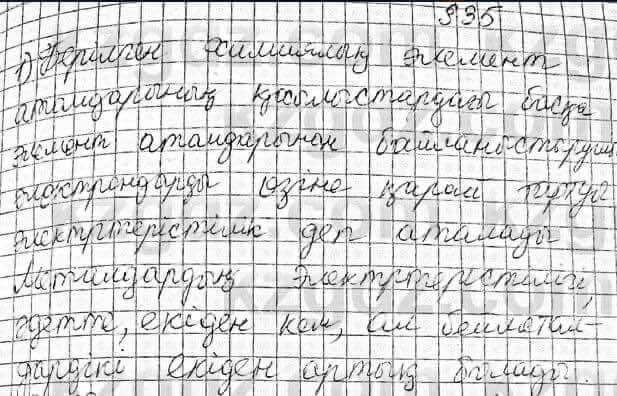 §35
1) Берилген химиялық элемент
атомдарының қосылыстардағы басқа
элемент атомдарынан байланыстырушы
электрондарды өзіне қарай тартуы
электртерістілік деп аталады
Металдардың электртерістілігі,
әдетте, екіден кем, ал бейметал-
дардікі екіден артық болады.